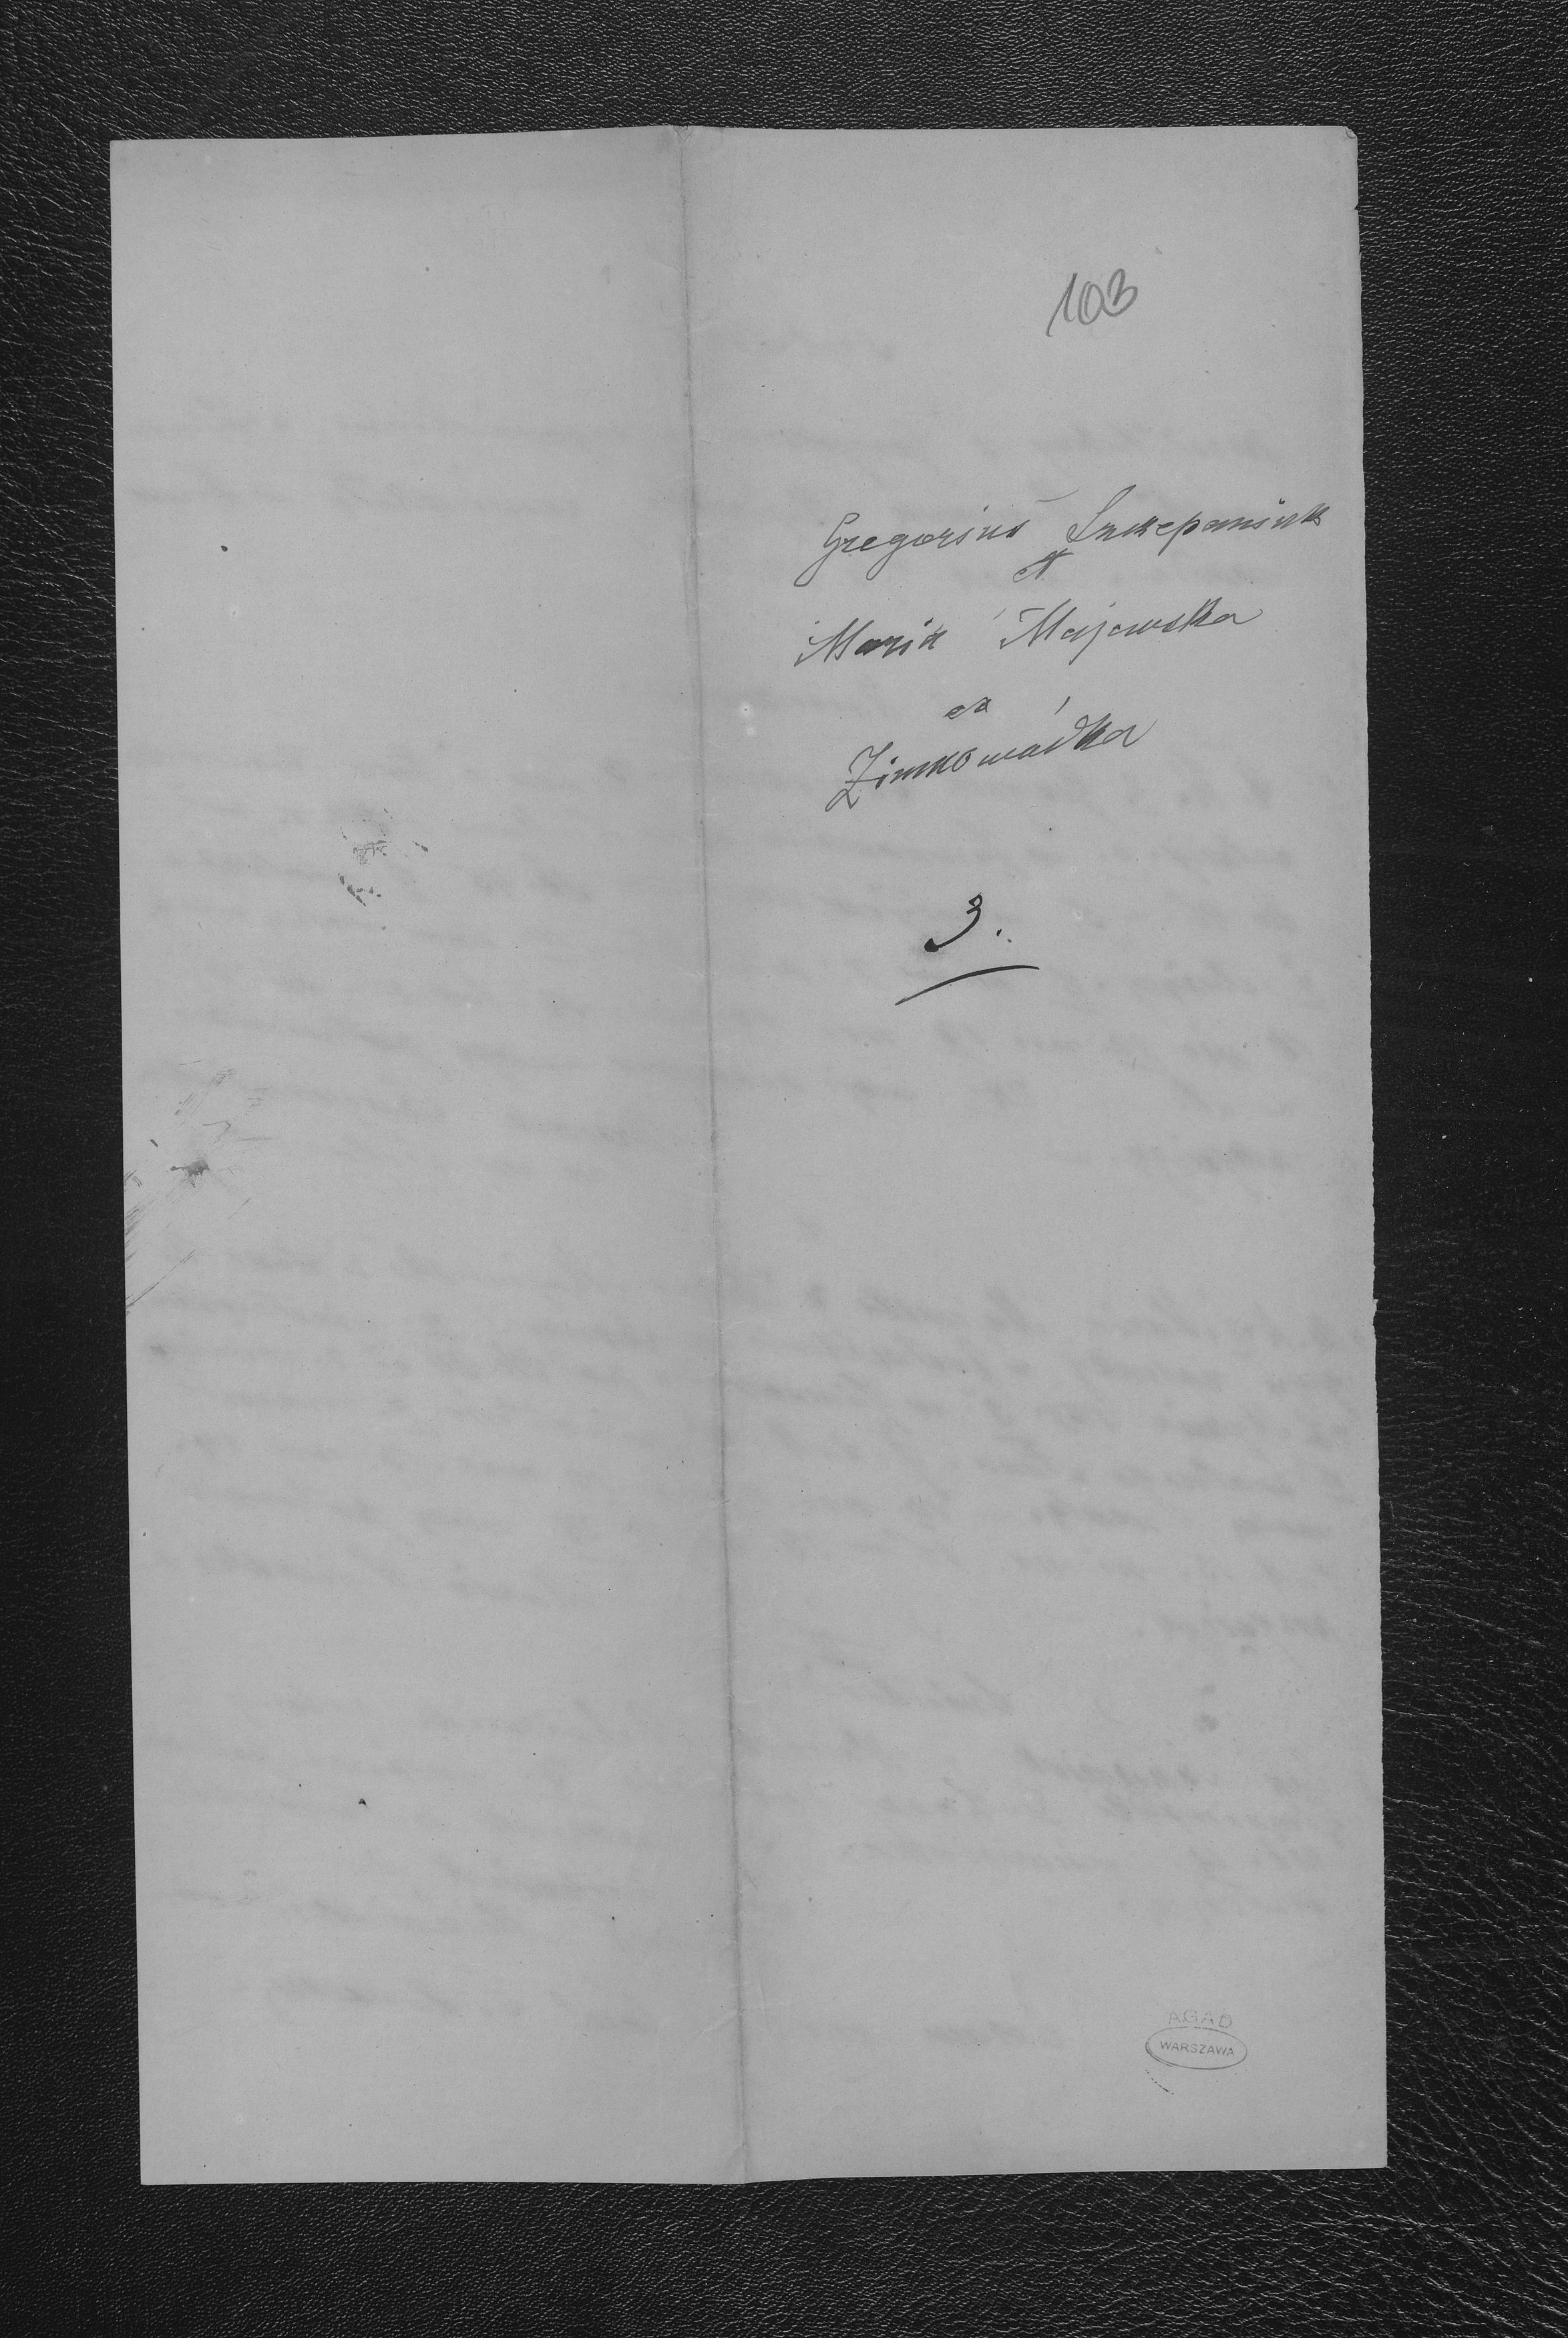 103
Gregorius Szczepaniuk
et
Maria Majewska
ex
Zimnowódka
3.
AGAD
WARSZAWA